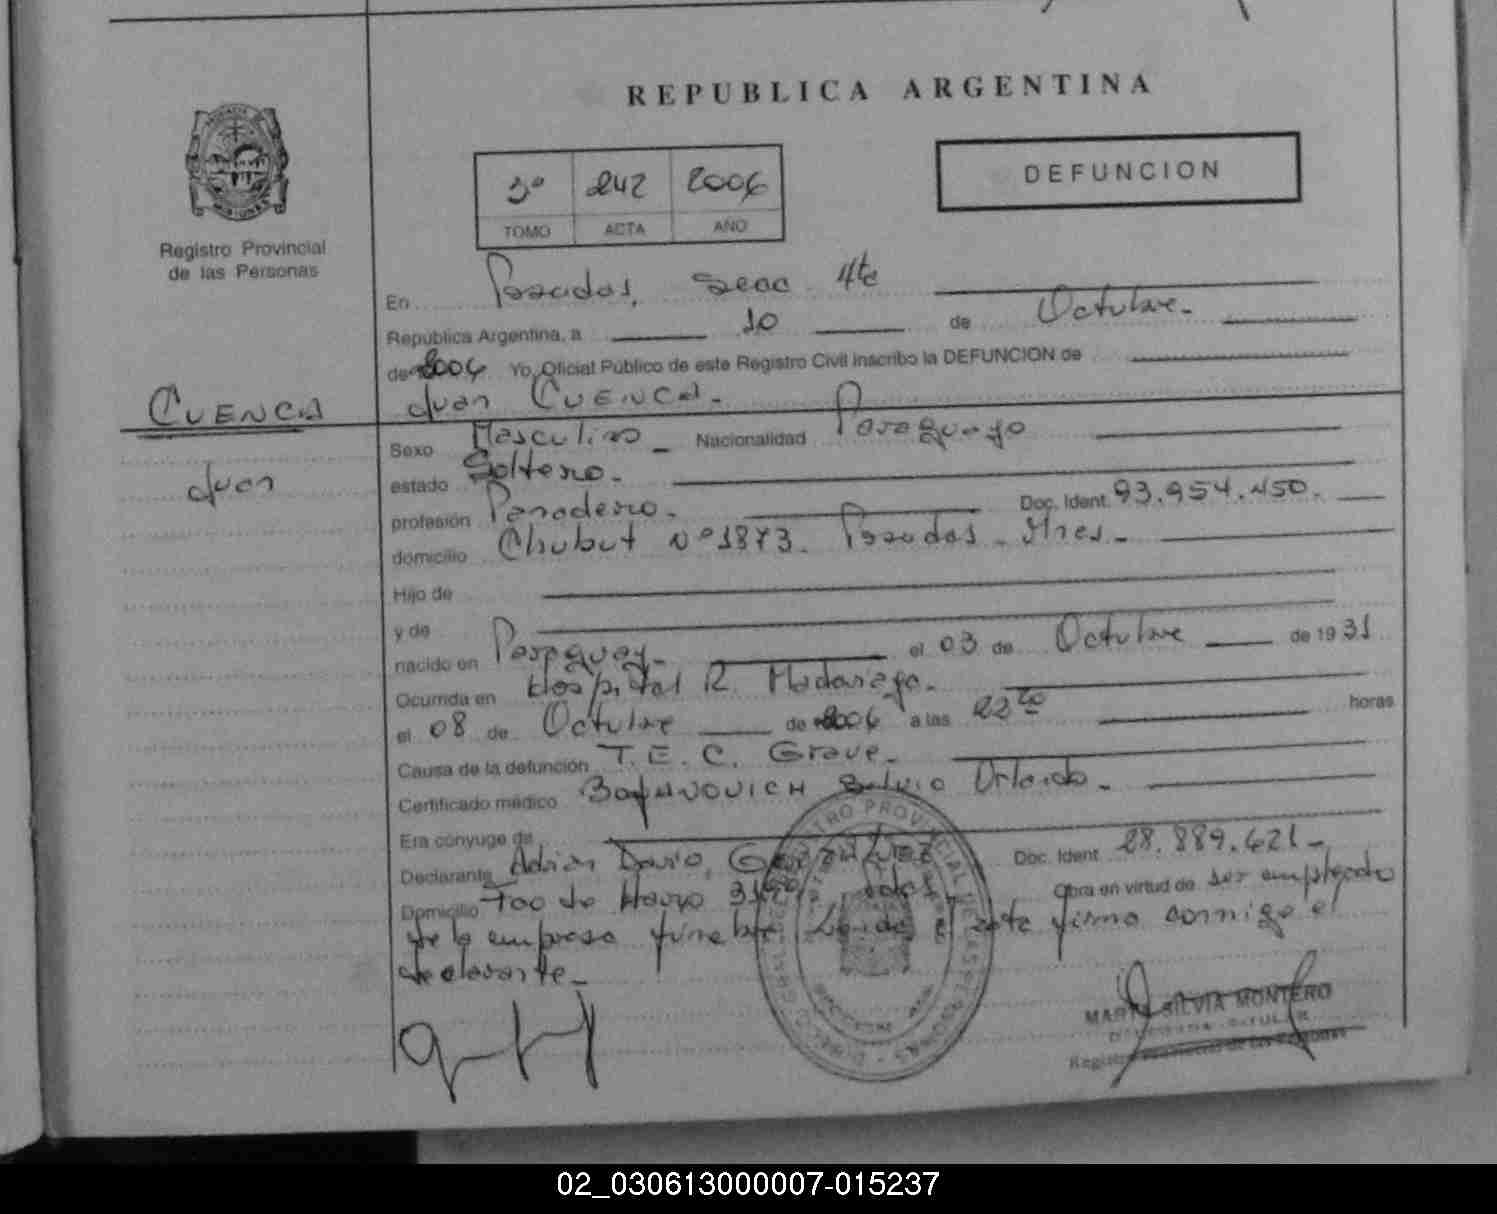 REPUBLICA ARGENTINA
DEFUNCION
3º 242 2006
TOMO ACTA AÑO
Registro Provincial
de las Personas
En Posadas, Secc 4ta
República Argentina, a 10 de Octubre.
de 2006 Yo, Oficial Público de este Registro Civil inscribo la DEFUNCION de
Juan CUENCA.
CUENCA
Juan
Sexo Masculino Nacionalidad Paraguayo
estado Soltero.
profesión Panadero. Doc. Ident. 93.954.450.
domicilio Chubut Nº 1873. Posadas. Mnes.
Hijo de
y de
nacido en Paraguay. el 03 de Octubre de 1931
Ocurrida en Hospital R. Madariaga.
el 08 de Octubre de 2006 a las 22 horas
Causa de la defunción T.E.C. Grave.
Certificado médico Silvio Orlando.
Era cónyuge de
Declarante Adrian Dario, Doc. Ident. 28.889.621
Domicilio Obra en virtud de ser empleado
de la empresa fúnebre. Leída el acta firma conmigo el
declarante.
SILVIA MONTERO
02_030613000007-015237